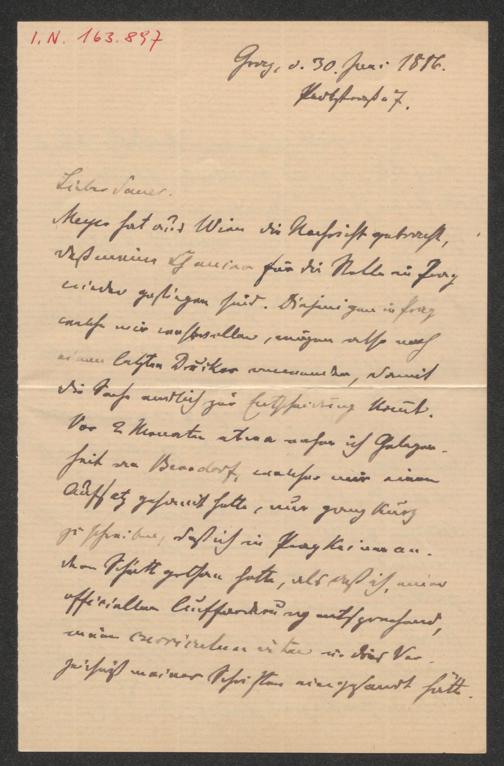 I.N. 163.897
Graz, d. 30. Juni 1886.
7.
Lieber Sauer.
Meyer hat aus Wien die Nachricht gebracht,
daß meine Chancen für die Stelle in Prag
wieder gestiegen sind. Diejenigen in Prag
welche mir wohlwollen, mögen also noch
einen letzten Drucker anwenden, damit
die Sache endlich zur Entscheidung kommt.
Vor 2 Monaten etwa nahm ich Gelegen-
heit an Benndorf, welcher mir einen
Aufsatz gesandt hatte, nur ganz kurz
zu schreiben, daß ich in Prag keinen an-
dern Schritt gethan hätte, als daß ich, einer
officiellen Aufforderung entsprechend,
mein curriculum vitae u. das Ver-
zeichniß meiner Schriften eingesandt hätte.